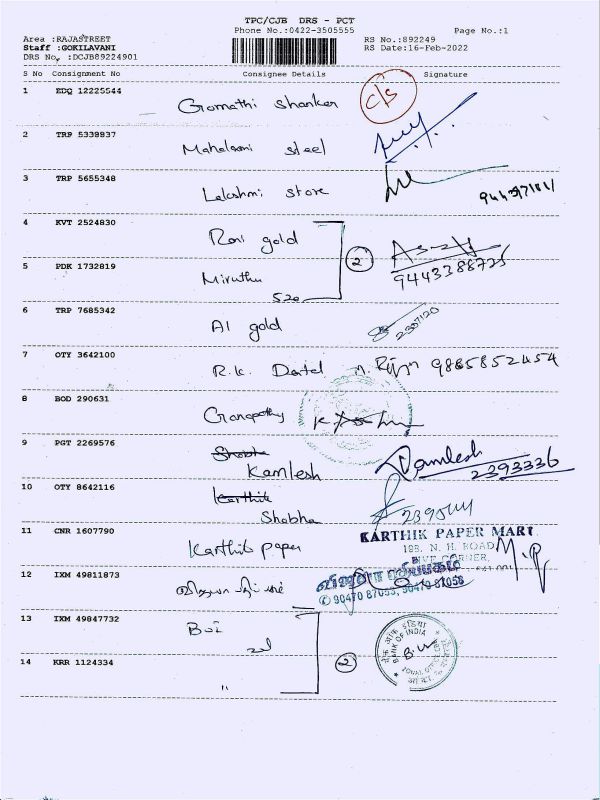 TPC/CJB DRS - PCT
Phone No.:0422-3505555
Page No.:1
Area :RAJASTREET
Staff :GOKILAVANI
DRS No. :DCJB89224901
RS No.:892249
RS Date:16-Feb-2022
S No Consignment No Consignee Details Signature
1 EDQ 12225544 Gomathi Shanker C/S
2 TRP 5338837 Mahalaxmi steel
3 TRP 5655348 Lakshmi store
4 KVT 2524830 Roni gold
5 PDK 1732819 Miruthu 2 9443388725
520
6 TRP 7685342 A1 gold 2307120
7 OTY 3642100 R.K. Dental 9885852454
8 BOD 290631 Ganapathy
9 PGT 2269576 Shobha
Kamlesh Kamlesh 2393336
10 OTY 8642116 Karthik
Shobha
11 CNR 1607790 Karthik paper
KARTHIK PAPER MART
N. H. ROAD
FIVE CORNER,
12 IXM 49811873
90470 87053, 90470 87058
13 IXM 49847732 BOI
2
BANK OF INDIA
14 KRR 1124334 "